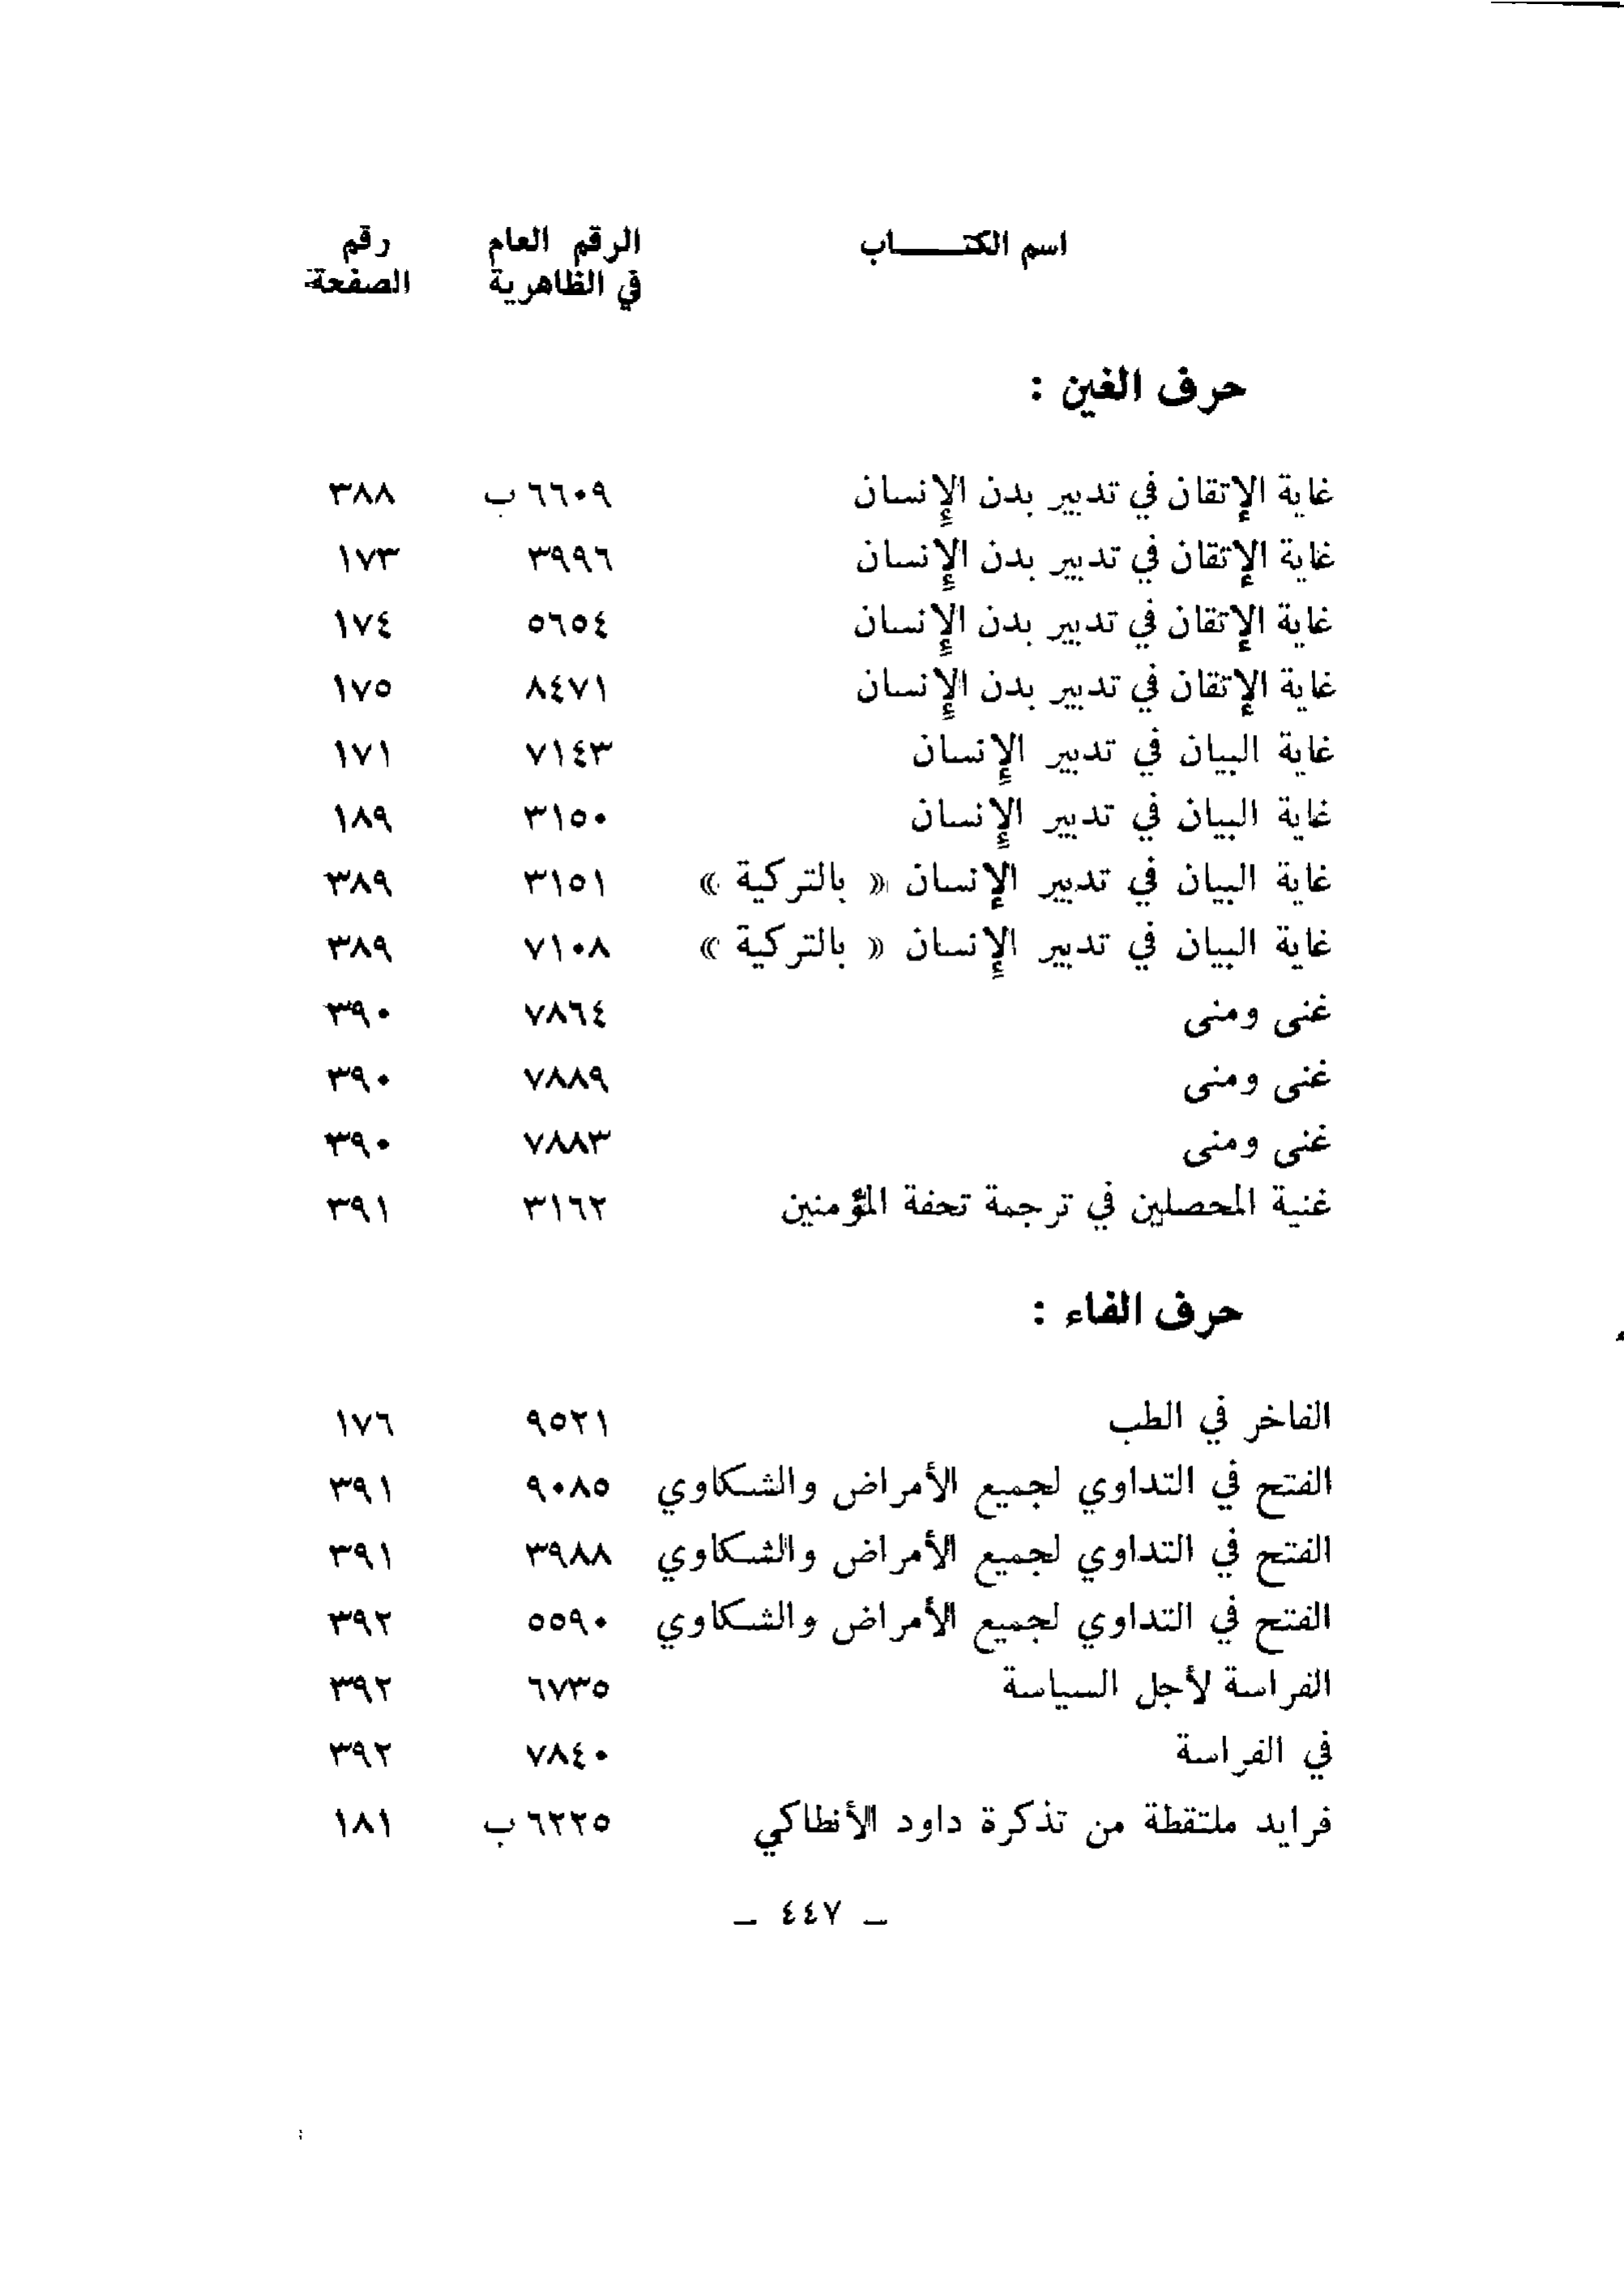 اسم الكتـــــاب الرقم العام رقم
في الظاهرية الصفحة
حرف الغين :
غاية الإتقان في تدبير بدن الإنسان ٦٦٠٩ ب ٣٨٨
غاية الإتقان في تدبير بدن الإنسان ٣٩٩٦ ١٧٣
غاية الإتقان في تدبير بدن الإنسان ٥٦٥٤ ١٧٤
غاية الإتقان في تدبير بدن الإنسان ٨٤٧١ ١٧٥
غاية البيان في تدبير الإنسان ٧١٤٣ ١٧١
غاية البيان في تدبير الإنسان ٣١٥٠ ١٨٩
غاية البيان في تدبير الإنسان « بالتركية » ٣١٥١ ٣٨٩
غاية البيان في تدبير الإنسان « بالتركية » ٧١٠٨ ٣٨٩
غنى ومنى ٧٨٦٤ ٣٩٠
غنى ومنى ٧٨٨٩ ٣٩٠
غنى ومنى ٧٨٨٣ ٣٩٠
غنية المحصلين في ترجمة تحفة المؤمنين ٣١٦٢ ٣٩١
حرف الفاء :
الفاخر في الطب ٩٥٢١ ١٧٦
الفتح في التداوي لجميع الأمراض والشكاوي ٩٠٨٥ ٣٩١
الفتح في التداوي لجميع الأمراض والشكاوي ٣٩٨٨ ٣٩١
الفتح في التداوي لجميع الأمراض والشكاوي ٥٥٩٠ ٣٩٢
الفراسة لأجل السياسة ٦٧٣٥ ٣٩٢
في الفراسة ٧٨٤٠ ٣٩٢
فرايد ملتقطة من تذكرة داود الأنطاكي ٦٢٢٥ ب ١٨١
– ٤٤٧ –